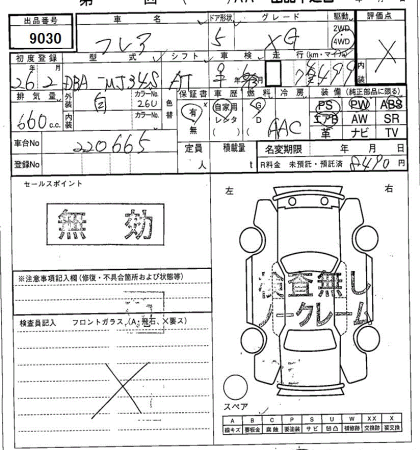 出品番号 車名 ドア形状 グレード 駆動 評価点
9030 フレア 5 XG 2WD 4WD ×
初度登録 型式 シフト 車検 走行(km・マイル) 内装
年 月
26 2 DBA MJ34S AT
排気量 外装 カラーNo 色替 保証書 車歴 燃料 冷房 装備(純正部品に限る)
660 c.c. 白 26U 有 無 自家用 レンタ G D AAC PS PW ABS
内装 カラーNo エアB AW SR
革 ナビ TV
車台No 220665 定員 積載量 名変期限 年 月 日
登録No 人 t R料金 未預託・預託済 8410 円
セールスポイント
無効
左 右
※注意事項記入欄(修復・不具合箇所および状態等)
検査無し
ノークレーム
検査員記入 フロントガラス(A・飛石、×要ス)
スペア
A B C P S U W X XX
線キズ 要板金 腐蝕 要塗装 サビ 凹凸 補修跡 交換跡 要交換